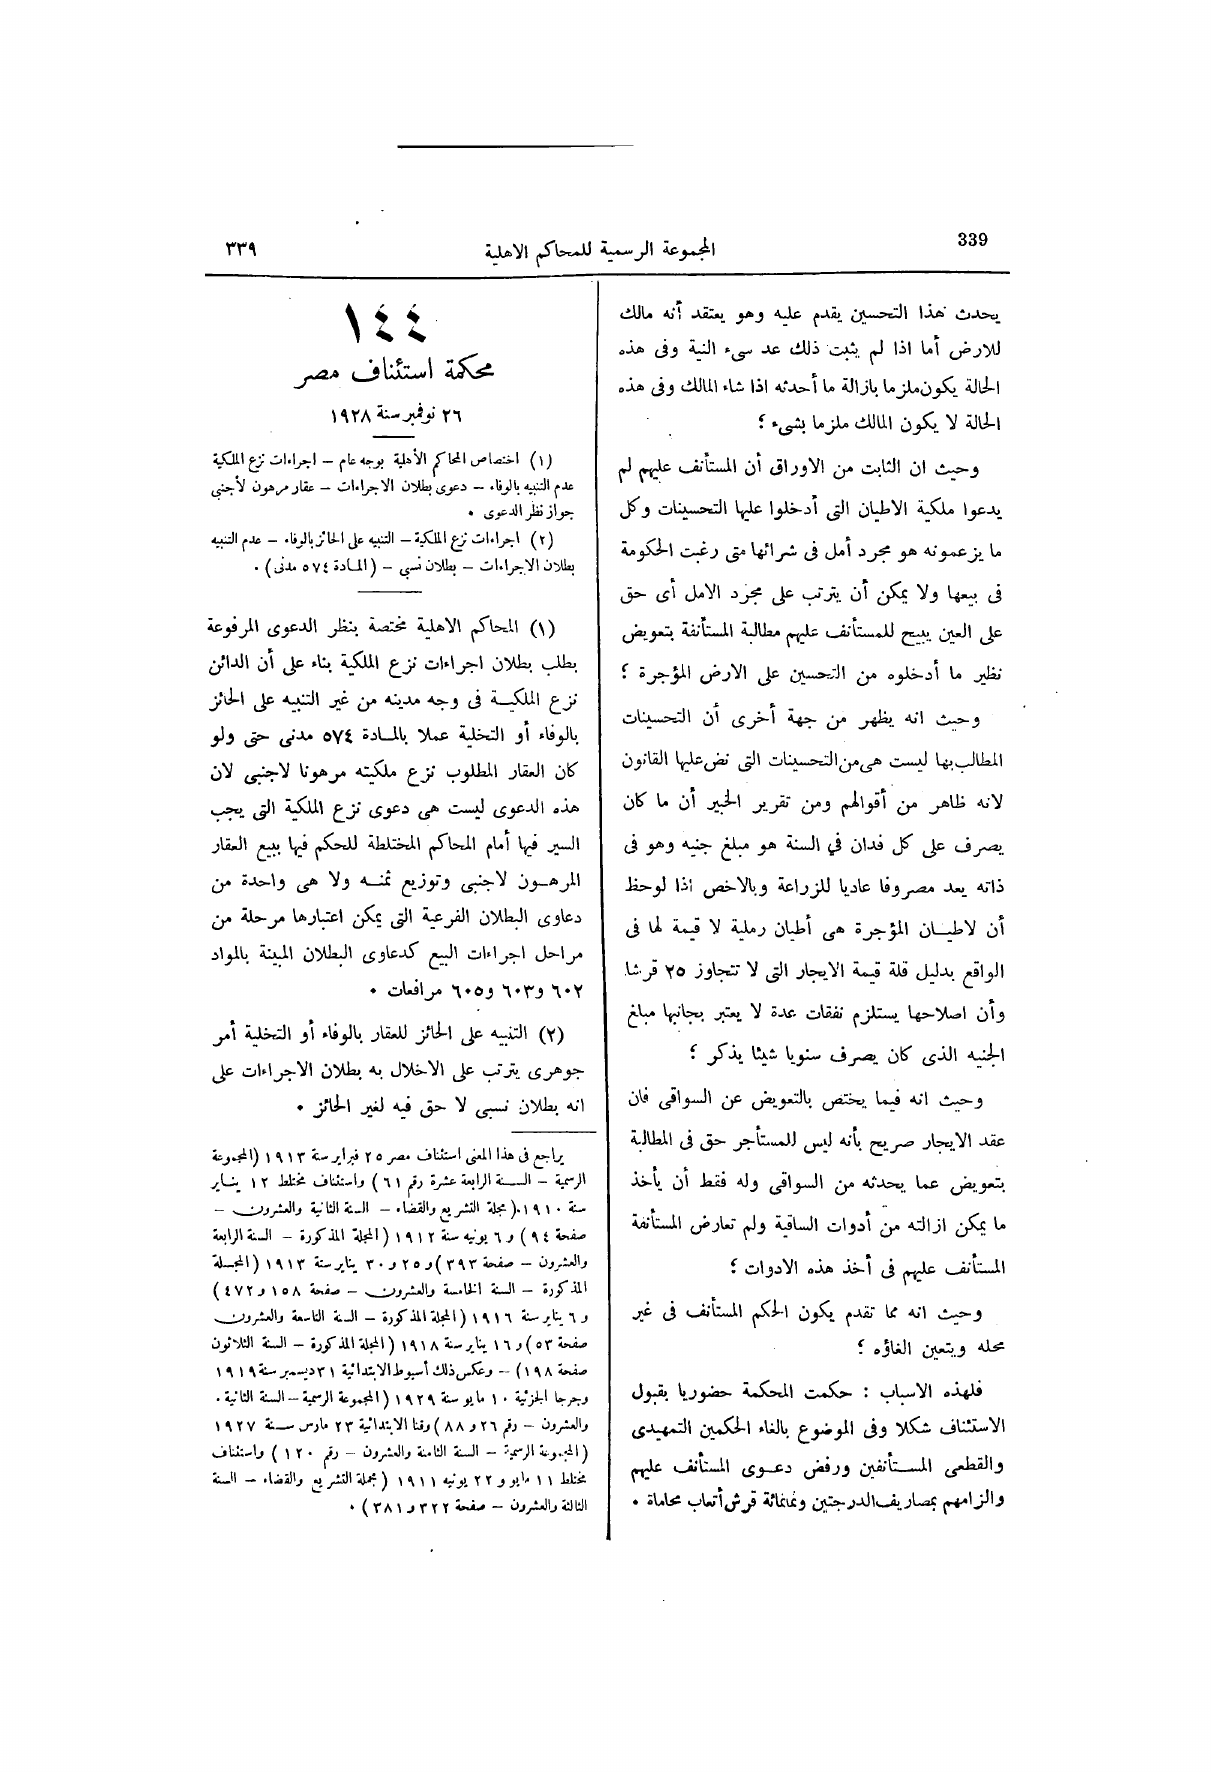 339
المجموعة الرسمية للمحاكم الاهلية
٣٣٩
يحدث هذا التحسين يقدم عليه وهو يعتقد أنه مالك
للارض أما اذا لم يثبت ذلك عد سىء النية وفى هذه
الحالة يكون ملزما بازالة ما أحدثه اذا شاء المالك وفى هذه
الحالة لا يكون المالك ملزما بشىء ؟
وحيث ان الثابت من الاوراق أن المستأنف عليهم لم
يدعوا ملكية الاطيان التى أدخلوا عليها التحسينات وكل
ما يزعمونه هو مجرد أمل فى شرائها متى رغبت الحكومة
فى بيعها ولا يمكن أن يترتب على مجرد الامل أى حق
على العين يبيح للمستأنف عليهم مطالبة المستأنفة بتعويض
نظير ما أدخلوه من التحسين على الارض المؤجرة ؟
وحيث انه يظهر من جهة أخرى أن التحسينات
المطالب بها ليست هى من التحسينات التى نض عليها القانون
لانه ظاهر من أقوالهم ومن تقرير الخبير أن ما كان
يصرف على كل فدان في السنة هو مبلغ جنيه وهو فى
ذاته يعد مصروفا عاديا للزراعة وبالاخص اذا لوحظ
أن لاطيــان المؤجرة هى أطيان رملية لا قيمة لها فى
الواقع بدليل قلة قيمة الايجار التى لا تتجاوز ٢٥ قرشا.
وأن اصلاحها يستلزم نفقات عدة لا يعتبر بجانبها مبلغ
الجنيه الذى كان يصرف سنويا شيئا يذكر ؟
وحيث انه فيما يختص بالتعويض عن السواقى فان
عقد الايجار صريح بأنه ليس للمستأجر حق فى المطالبة
بتعويض عما يحدثه من السواقى وله فقط أن يأخذ
ما يمكن ازالته من أدوات الساقية ولم تعارض المستأنفة
المستأنف عليهم فى أخذ هذه الادوات ؟
وحيث انه مما تقدم يكون الحكم المستأنف فى غير
محله ويتعين الغاؤه ؟
فلهذه الاسباب : حكمت المحكمة حضوريا بقبول
الاستئناف شكلا وفى الموضوع بالغاء الحكمين التمهيدى
والقطعى المســتأنفين ورفض دعــوى المستأنف عليهم
والزامهم بمصاريف الدرجتين وثمانمائة قرش أتعاب محاماة .
١٤٤
محكمة استئناف مصر
٢٦ نوفمبر سنة ١٩٢٨
(١) اختصاص المحاكم الأهلية بوجه عام – اجراءات نزع الملكية
عدم التنبيه بالوفاء – دعوى بطلان الاجراءات – عقار مرهون لأجنبى
جواز نظر الدعوى .
(٢) اجراءات نزع الملكية – التنبيه على الحائز بالوفاء – عدم التنبيه
بطلان الاجراءات – بطلان نسبى – (المــادة ٥٧٤ مدنى) .
(١) المحاكم الاهلية مختصة بنظر الدعوى المرفوعة
بطلب بطلان اجراءات نزع الملكية بناء على أن الدائن
نزع الملكيــة فى وجه مدينه من غير التنبيه على الحائز
بالوفاء أو التخلية عملا بالمــادة ٥٧٤ مدنى حتى ولو
كان العقار المطلوب نزع ملكيته مرهونا لاجنبى لان
هذه الدعوى ليست هى دعوى نزع الملكية التى يجب
السير فيها أمام المحاكم المختلطة للحكم فيها ببيع العقار
المرهــون لاجنبى وتوزيع ثمنــه ولا هى واحدة من
دعاوى البطلان الفرعية التى يمكن اعتبارها مرحلة من
مراحل اجراءات البيع كدعاوى البطلان المبينة بالمواد
٦٠٢ و٦٠٣ و٦٠٥ مرافعات .
(٢) التنبيه على الحائز للعقار بالوفاء أو التخلية أمر
جوهرى يترتب على الاخلال به بطلان الاجراءات على
انه بطلان نسبى لا حق فيه لغير الحائز .
يراجع فى هذا المعنى استئناف مصر ٢٥ فبراير سنة ١٩١٣ (المجموعة
الرسمية – الســنة الرابعة عشرة رقم ٦١) واستئناف مختلط ١٢ ينــاير
سنة ١٩١٠ (مجلة التشريع والقضاء – السنة الثانية والعشرون –
صفحة ٩٤) و ٦ يونيه سنة ١٩١٢ (المجلة المذكورة – السنة الرابعة
والعشرون – صفحة ٣٩٣) و٢٥ و٣٠ يناير سنة ١٩١٣ (المجــلة
المذكورة – السنة الخامسة والعشرون – صفحة ١٥٨ و ٤٧٢)
و ٦ يناير سنة ١٩١٦ (المجلة المذكورة – السنة التاسعة والعشرون
صفحة ٥٣) و١٦ يناير سنة ١٩١٨ (المجلة المذكورة – السنة الثلاثون
صفحة ١٩٨) – وعكس ذلك أسيوط الابتدائية ٣١ ديسمبر سنة ١٩١٩
وجرجا الجزئية ١٠ مايو سنة ١٩٢٩ (المجموعة الرسمية – السنة الثانية .
والعشرون – رقم ٢٦ و ٨٨) وقنا الابتدائية ٢٣ مارس ســنة ١٩٢٧
(المجموعة الرسمية – السنة الثامنة والعشرون – رقم ١٢٠) واستئناف
مختلط ١١ مايو و ٢٢ يونيه ١٩١١ (مجلة التشريع والقضاء – السنة
الثالثة والعشرون – صفحة ٣٢٢ و٣٨١) .